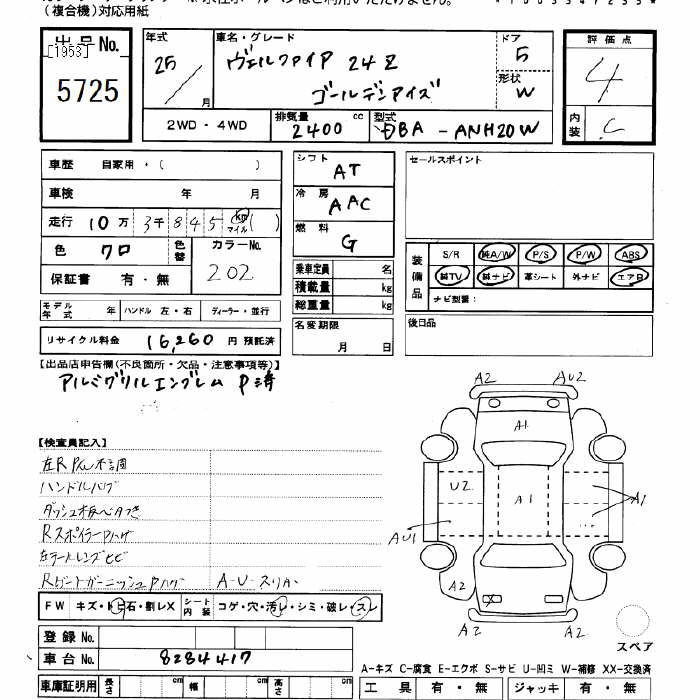 (複合機)対応用紙
出品No.
[1953]
5725
年式
25
月
車名・グレード
ヴェルファイア 24Z
ゴールデンアイズ
ドア
5
形状
W
評価点
4
内装
C
2WD・4WD
排気量
2400 cc
型式
DBA - ANH20W
車歴 自家用・( )
車検 年 月
走行 10万 3千 8 4 5 km マイル ( )
色 クロ
色替
カラーNo.
202
保証書 有・無
モデル年式 年 ハンドル 左・右 ディーラー・並行
リサイクル料金 16,260 円 預託済
シフト AT
冷房 AAC
燃料 G
乗車定員 名
積載量 kg
総重量 kg
名変期限
月 日
セールスポイント
装備品
S/R 純A/W P/S P/W ABS
純TV 純ナビ 革シート 外ナビ エアB
ナビ型番:
後日品
【出品店申告欄(不良箇所・欠品・注意事項等)】
アルミグリルエンブレム P済
【検査員記入】
左R P/W不調
ハンドルハゲ
ダッシュ板ベタつき
Rスポイラー Pハゲ
左テールレンズヒビ
Rゲートガーニッシュ Pハゲ A-U-スリ
FW キズ・トビ石・割レX シート内装 コゲ・穴・汚レ・シミ・破レ・スレ
登録No.
車台No. 8284417
車庫証明用 長さ cm 幅 cm 高さ cm
A2 AU2
A1
U2 A1 A1
AU1
A2
X
A2 A2
スペア
A-キズ C-腐食 E-エクボ S-サビ U-凹ミ W-補修 XX-交換済
工具 有・無 ジャッキ 有・無